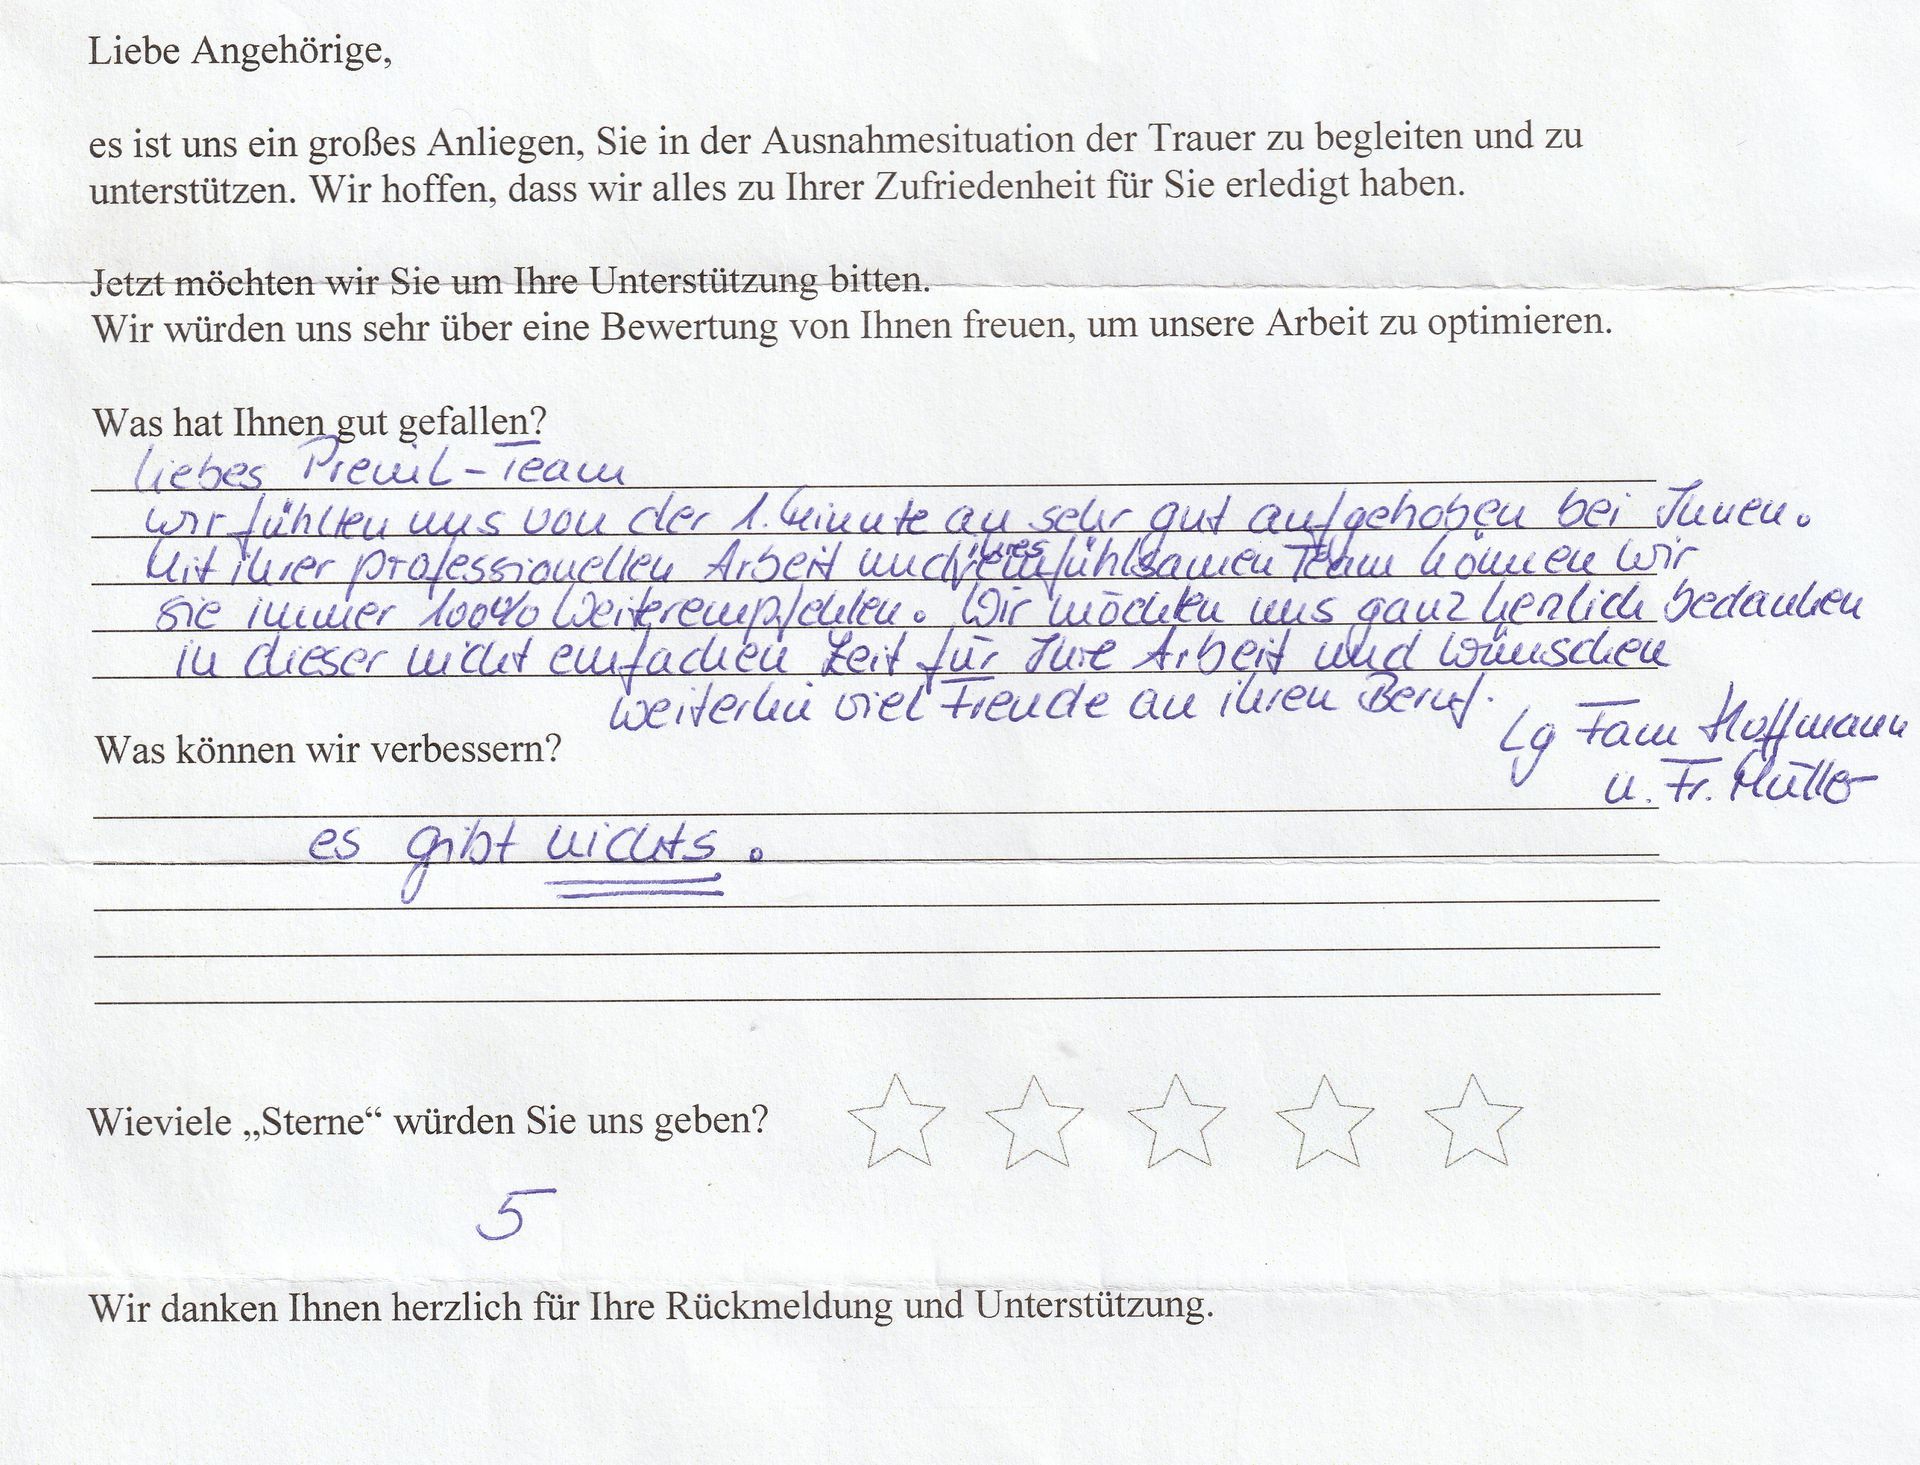 Liebe Angehörige,
es ist uns ein großes Anliegen, Sie in der Ausnahmesituation der Trauer zu begleiten und zu
unterstützen. Wir hoffen, dass wir alles zu Ihrer Zufriedenheit für Sie erledigt haben.
Jetzt möchten wir Sie um Ihre Unterstützung bitten.
Wir würden uns sehr über eine Bewertung von Ihnen freuen, um unsere Arbeit zu optimieren.
Was hat Ihnen gut gefallen?
Liebes -Team
wir fühlten uns von der 1. Minute an sehr gut aufgehoben bei Ihnen.
Mit ihrer professionellen Arbeit und ihres einfühlsamen Team können wir
sie immer 100% Weiterempfehlen. Wir möchten uns ganz herzlich bedanken
in dieser nicht einfachen Zeit für Ihre Arbeit und wünschen
weiterhin viel Freude an ihren Beruf.
Lg Fam Hoffmann
u. Fr. Müller
Was können wir verbessern?
es gibt nichts.
Wieviele „Sterne“ würden Sie uns geben?
5
Wir danken Ihnen herzlich für Ihre Rückmeldung und Unterstützung.